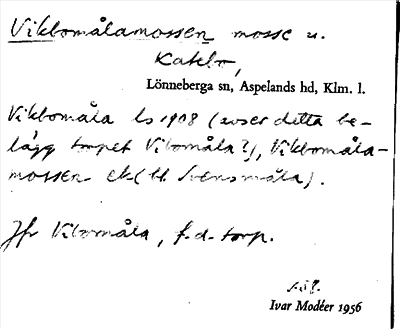 Vikbomålamossen mosse u.
Katebo,
Lönneberga sn, Aspelands hd, Klm. l.
Vikbomåla ls 1908 (avser detta be-
lägg torpet Vibomåla?), Vikbomåla-
mossen ek (bl. Svensmåla).
Jfr Vibomåla, f.d. torp.
Ivar Modéer 1956